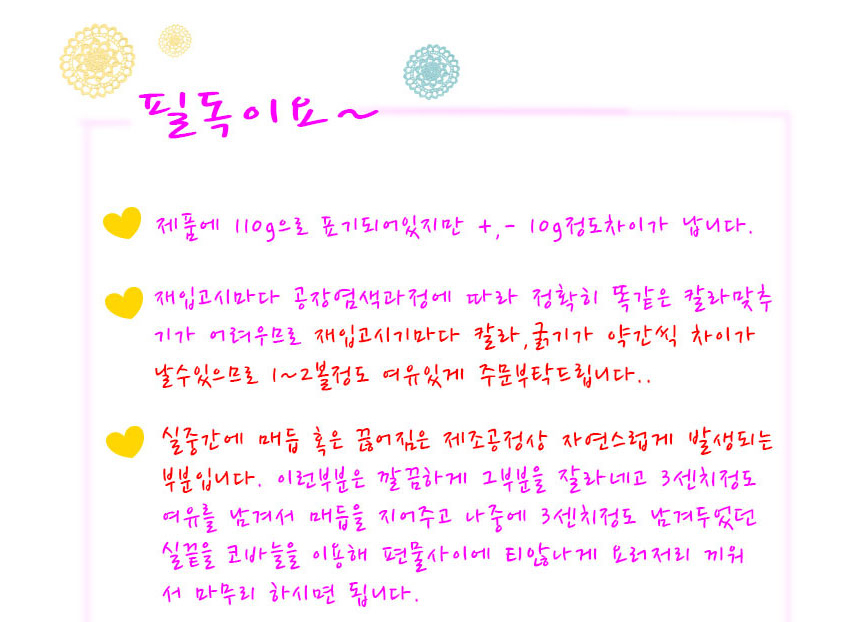 필독이요~
제품에 110g으로 표기되어있지만 +,- 10g정도차이가 납니다.
재입고시마다 공장염색과정에 따라 정확히 똑같은 칼라맞추
기가 어려우므로 재입고시기마다 칼라,굵기가 약간씩 차이가
날수있으므로 1~2볼정도 여유있게 주문부탁드립니다..
실중간에 매듭 혹은 끊어짐은 제조공정상 자연스럽게 발생되는
부분입니다. 이런부분은 깔끔하게 그부분을 잘라네고 3센치정도
여유를 남겨서 매듭을 지어주고 나중에 3센치정도 남겨두었던
실끝을 코바늘을 이용해 편물사이에 티않나게 요러저리 끼워
서 마무리 하시면 됩니다.